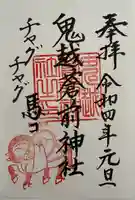 奉拝 令和四年元旦
鬼越蒼前神社
チャグチャグ
馬コ